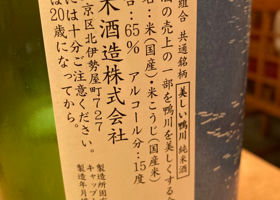 組合 共通銘柄 美しい鴨川 純米酒
の売上の一部を鴨川を美しくする会
名:米(国産)・米こうじ(国産米
合:65% アルコール分:15度
木酒造株式会社
京区北伊勢屋町727
には十分ご注意ください。
は20歳になってから。
製造所固
キャップ
製造年月